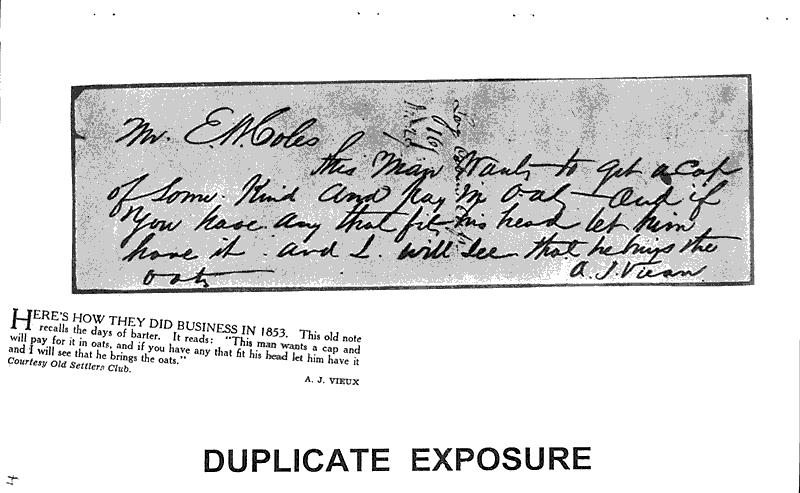 Mr. E. W. Coles
this Man Wants to get a Cap
of Some Kind and Pay in Oats and if
You have any that fit his head let him
have it and I will See that he brings the
oats
A. J. Vieux
HERE'S HOW THEY DID BUSINESS IN 1853. This old note
recalls the days of barter. It reads: "This man wants a cap and
will pay for it in oats, and if you have any that fit his head let him have it
and I will see that he brings the oats."
A. J. VIEUX
Courtesy Old Settlers Club.
DUPLICATE EXPOSURE
4